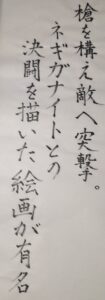 槍を構え敵へ突撃。
ネギガナイトとの
決闘を描いた絵画が有名